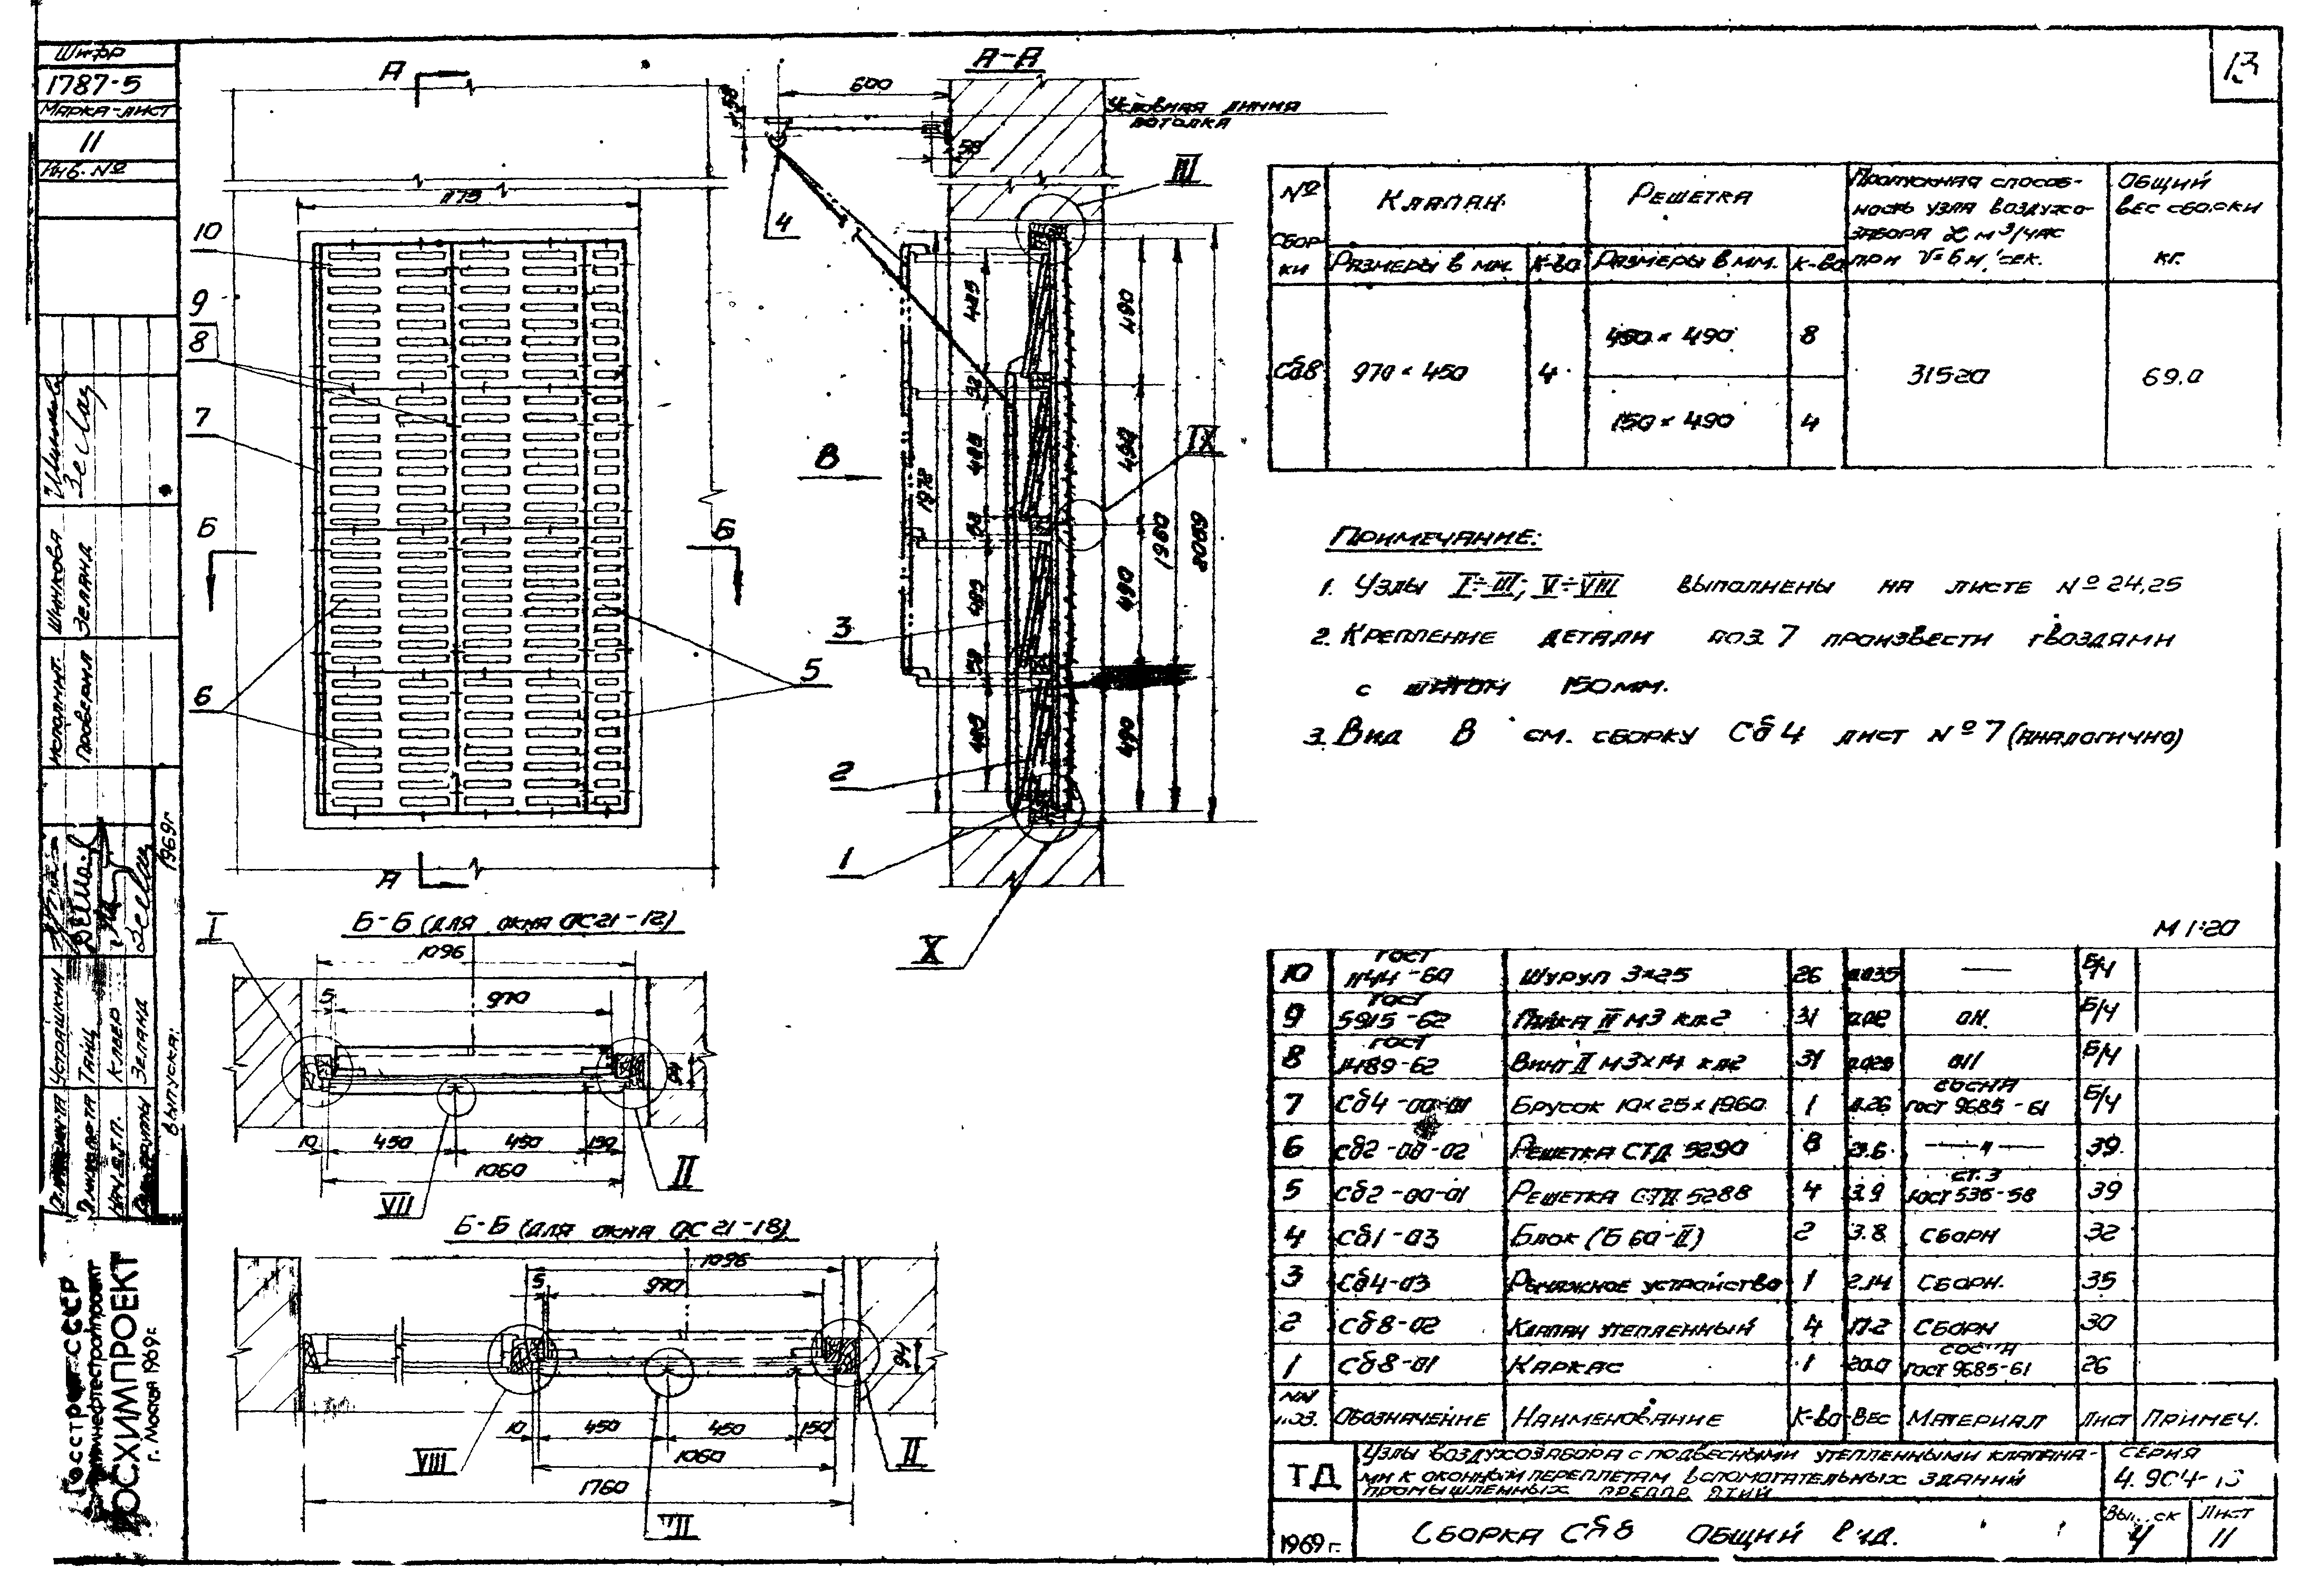 Шифр
1787-5
Марка-лист
11
Инв. №
13
А
А-А
600
58
Условная линия
потолка
III
1175
4
10
9
8
7
6
5
Б
Б
В
IX
3
2
1
X
А
425
490
490
490
490
1978
1960
Б-Б (для окна ОС21-12)
I
1096
5
970
94
10
450
450
150
1060
II
VII
Б-Б (для окна ОС21-18)
1096
5
970
94
10
450
450
150
1060
1760
VIII
II
№ сборки
Клапан
Решетка
Пропускная способ-
ность узла воздухо-
забора L м³/час
при V=6 м/сек.
Общий
вес сборки
кг.
Размеры в мм.
К-во
Размеры в мм.
К-во
Сб8
970 × 450
4
450 × 490
8
150 × 490
4
31520
69.0
Примечание:
1. Узлы I÷III; V÷VIII выполнены на листе № 24,25
2. Крепление детали поз. 7 произвести гвоздями
с шагом 150мм.
3. Вид В см. сборку Сб4 лист № 7 (аналогично)
М 1:20
10 ГОСТ 1144-60 Шуруп 3×25 26 0.035 — Б/ч
9 ГОСТ 5915-62 Гайка II М3 кл.2 31 0.02 Б/ч
8 ГОСТ 1489-62 Винт II М3×14 кл2 31 Б/ч
7 Сб4-00-01 Брусок 10×25×1960 1 0.26 сосна ГОСТ 9685-61 Б/ч
6 Сб2-00-02 Решетка СТД 5290 8 — " — 39
5 Сб2-00-01 Решетка СТД 5288 4 3.9 ст. 3 ГОСТ 535-58 39
4 Сб1-03 Блок (Б 60-II) 2 3.8 сборн 32
3 Сб4-03 Рычажное устройство 1 2.14 сборн. 35
2 Сб8-02 Клапан утепленный 4 17.2 сборн 30
1 Сб8-01 Каркас 1 20.0 сосна ГОСТ 9685-61 26
NN поз. Обозначение Наименование К-во Вес Материал Лист Примеч.
ТД
Узлы воздухозабора с подвесными утепленными клапана-
ми к оконным переплетам вспомогательных зданий
промышленных предприятий
Серия
4.904-
1969 г.
Сборка Сб8 Общий вид.
Выпуск
4
Лист
11
Исполнит. Шинкова
Проверил Зеланд
Устрашкин
Танц
Нач. о.т.п. Клеер
Рук. группы Зеланд
Выпуска: 1969г
Госстрой СССР
РОСХИМПРОЕКТ
г. Москва 1969г.